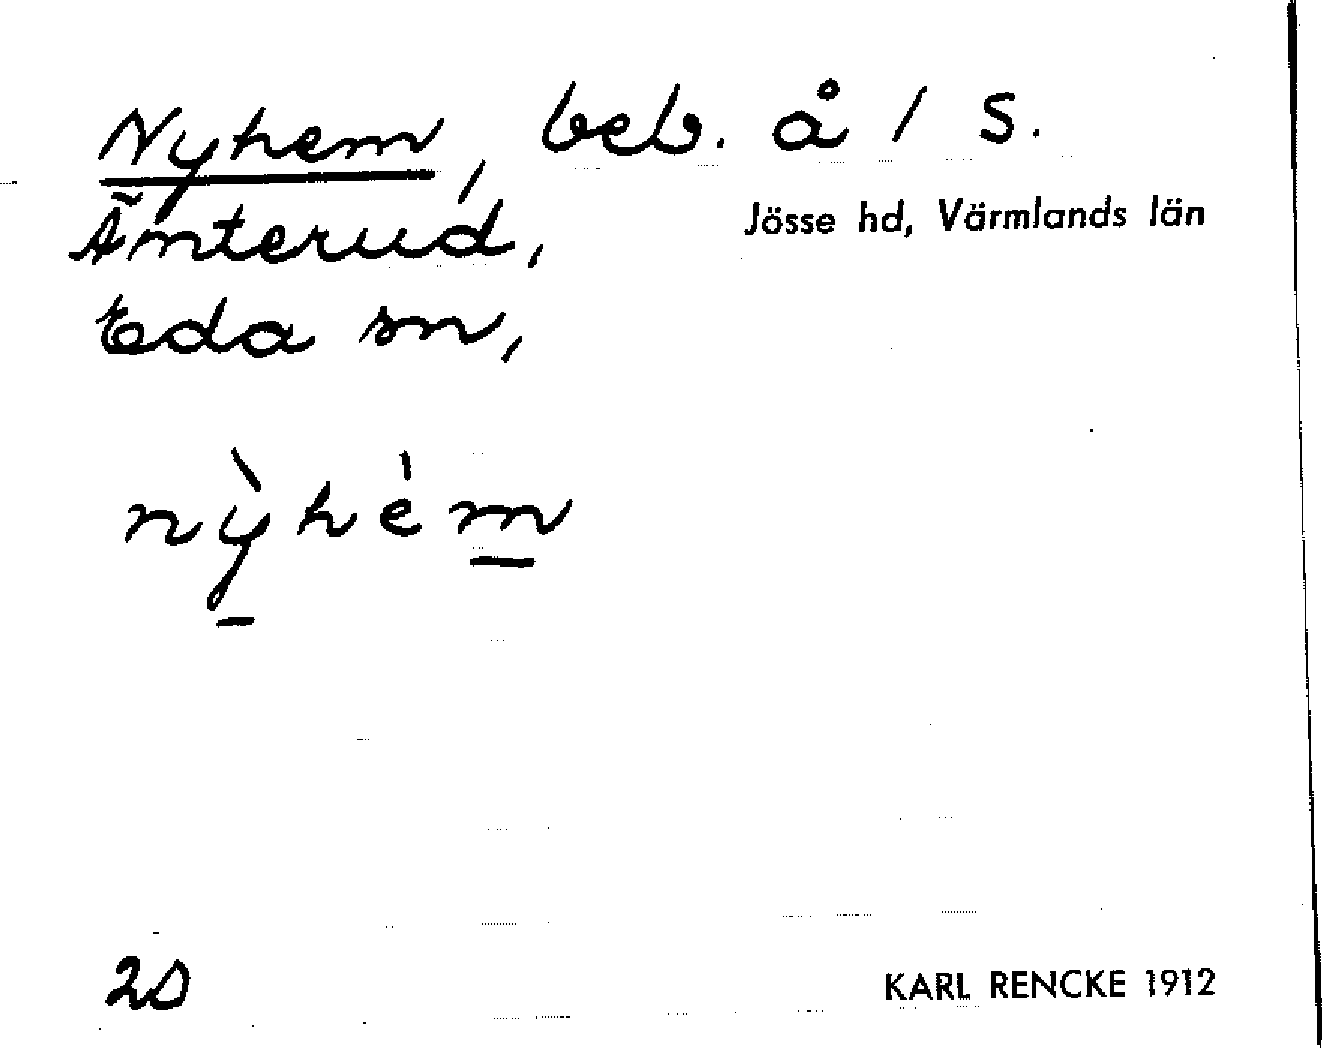 Nyhem, beb. å / S.
Änterud,
Jösse hd, Värmlands län
Eda sn,
nỳhèm
20
KARL RENCKE 1912